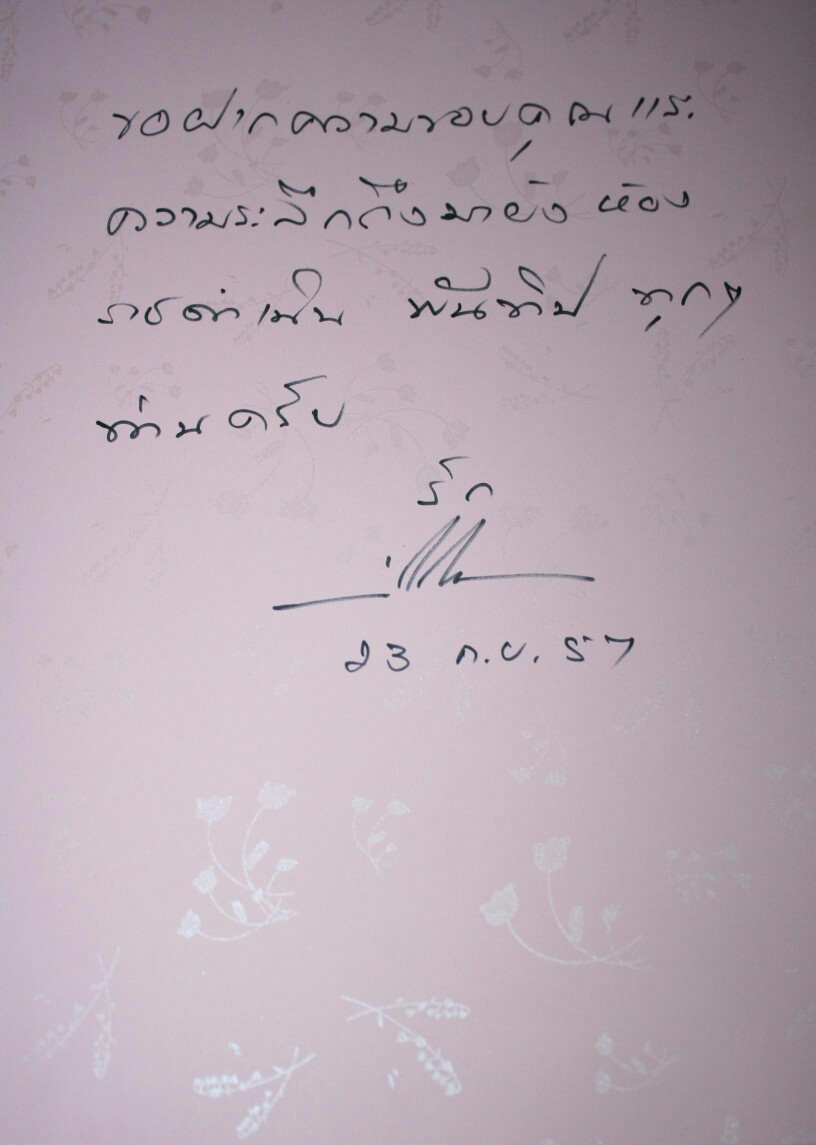 ขอฝากความขอบคุณและ
ความระลึกถึงมายังห้อง
ราชดำเนิน พันทิป ทุกๆ
ท่านครับ
รัก
23 ก.ย. 57